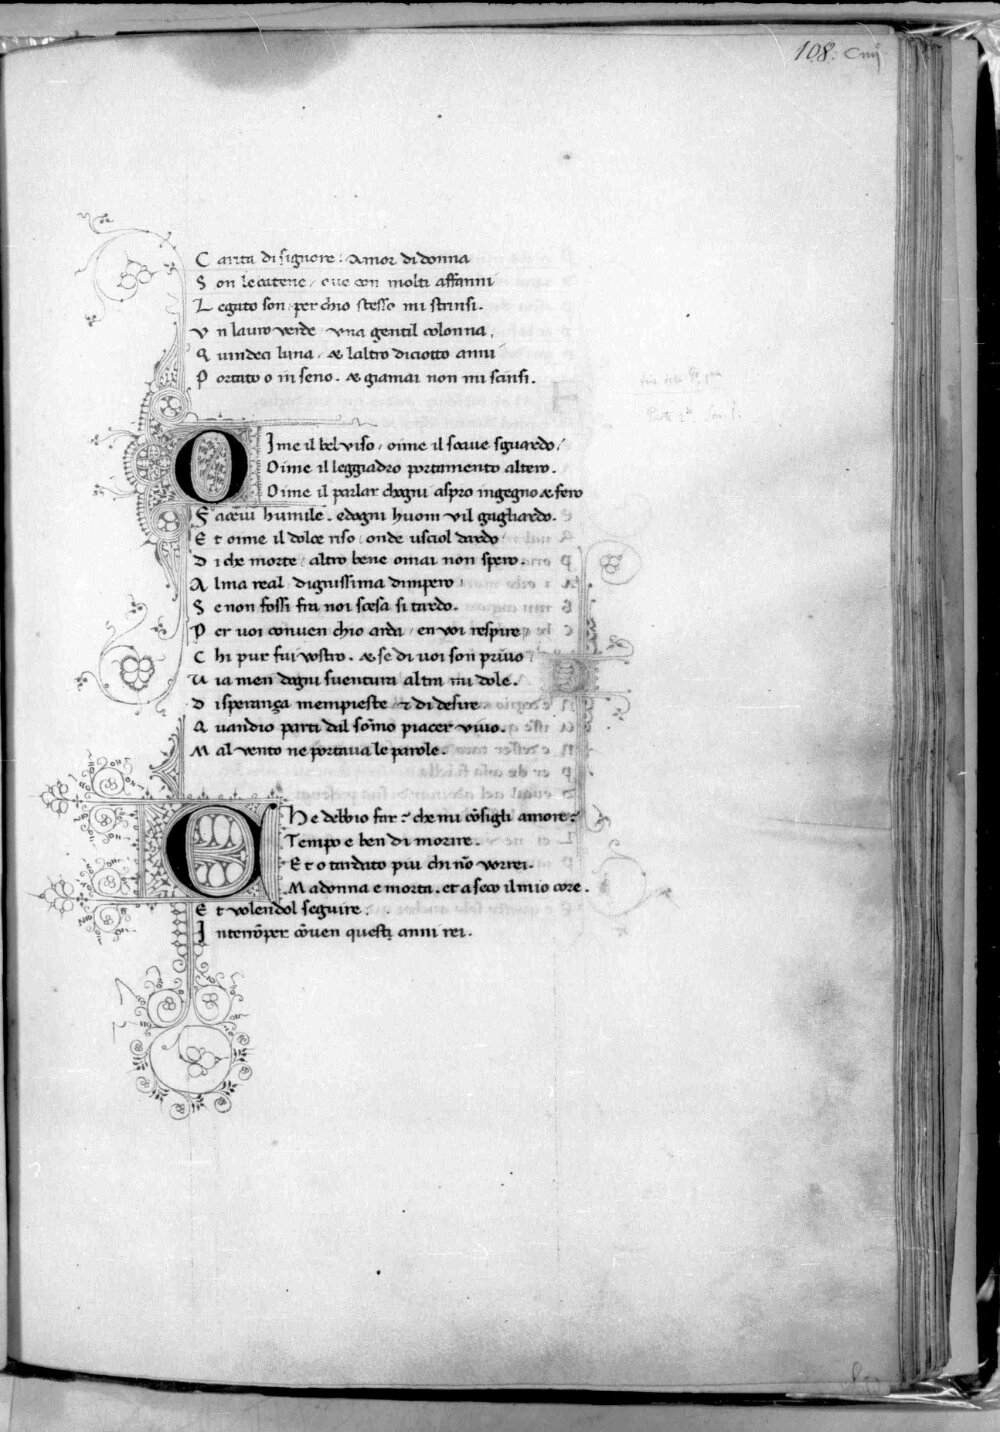 108. Ciiij
C arita di signore. Amor di donna
S on le catene, oue con molti affanni
L egato son, per chio stesso mi strinsi.
V n lauro verde vna gentil colonna,
Q uindeci luna, & laltro diciotto anni
P ortato o in seno. & giamai non mi scinsi.
O Ime il bel viso, oime il soaue sguardo,
Oime il leggiadro portamento altero.
Oime il parlar chogni aspro ingegno & fero
F aceui humile. edogni huom vil gagliardo.
E t oime il dolce riso, onde uscio l dardo
D i che morte, altro bene omai non spero.
A lma real, dignissima dimpero
S e non fossi fra noi scesa si tardo.
P er uoi conuen chio arda, en voi respire
C hi pur fui vostro. & se di uoi son priuo
V ia men dogni suentura altra mi dole.
D isperança mempieste & di desire
Q uandio parti dal sõmo piacer viuo.
M al vento ne portaua le parole.
C he debbio far? che mi cõsigli amore?
Tempo e ben di morire.
Et o tardato piu chi nõ vorrei.
Madonna e morta. et a seco il mio core.
E t volendol seguire.
I nterrõper cõuen questi anni rei.